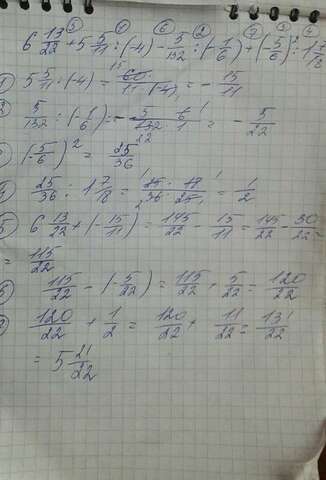 6 13/22 + 5 5/11 : (-4) - 5/132 : (-1/6) + (-5/6)² : 1 7/18
1) 5 5/11 : (-4) = - 60/11·(-4) = - 15/11
2) 5/132 : (-1/6) = - 5/132 · 6/1 = - 5/22
(-5/6)² = 25/36
4) 25/36 : 1 7/18 = 25/36 · 18/25 = 1/2
5) 6 13/22 + (-15/11) = 145/22 - 15/11 = 145/22 - 30/22 =
= 115/22
6) 115/22 - (-5/22) = 115/22 + 5/22 = 120/22
120/22 + 1/2 = 120/22 + 11/22 = 131/22
= 5 21/22